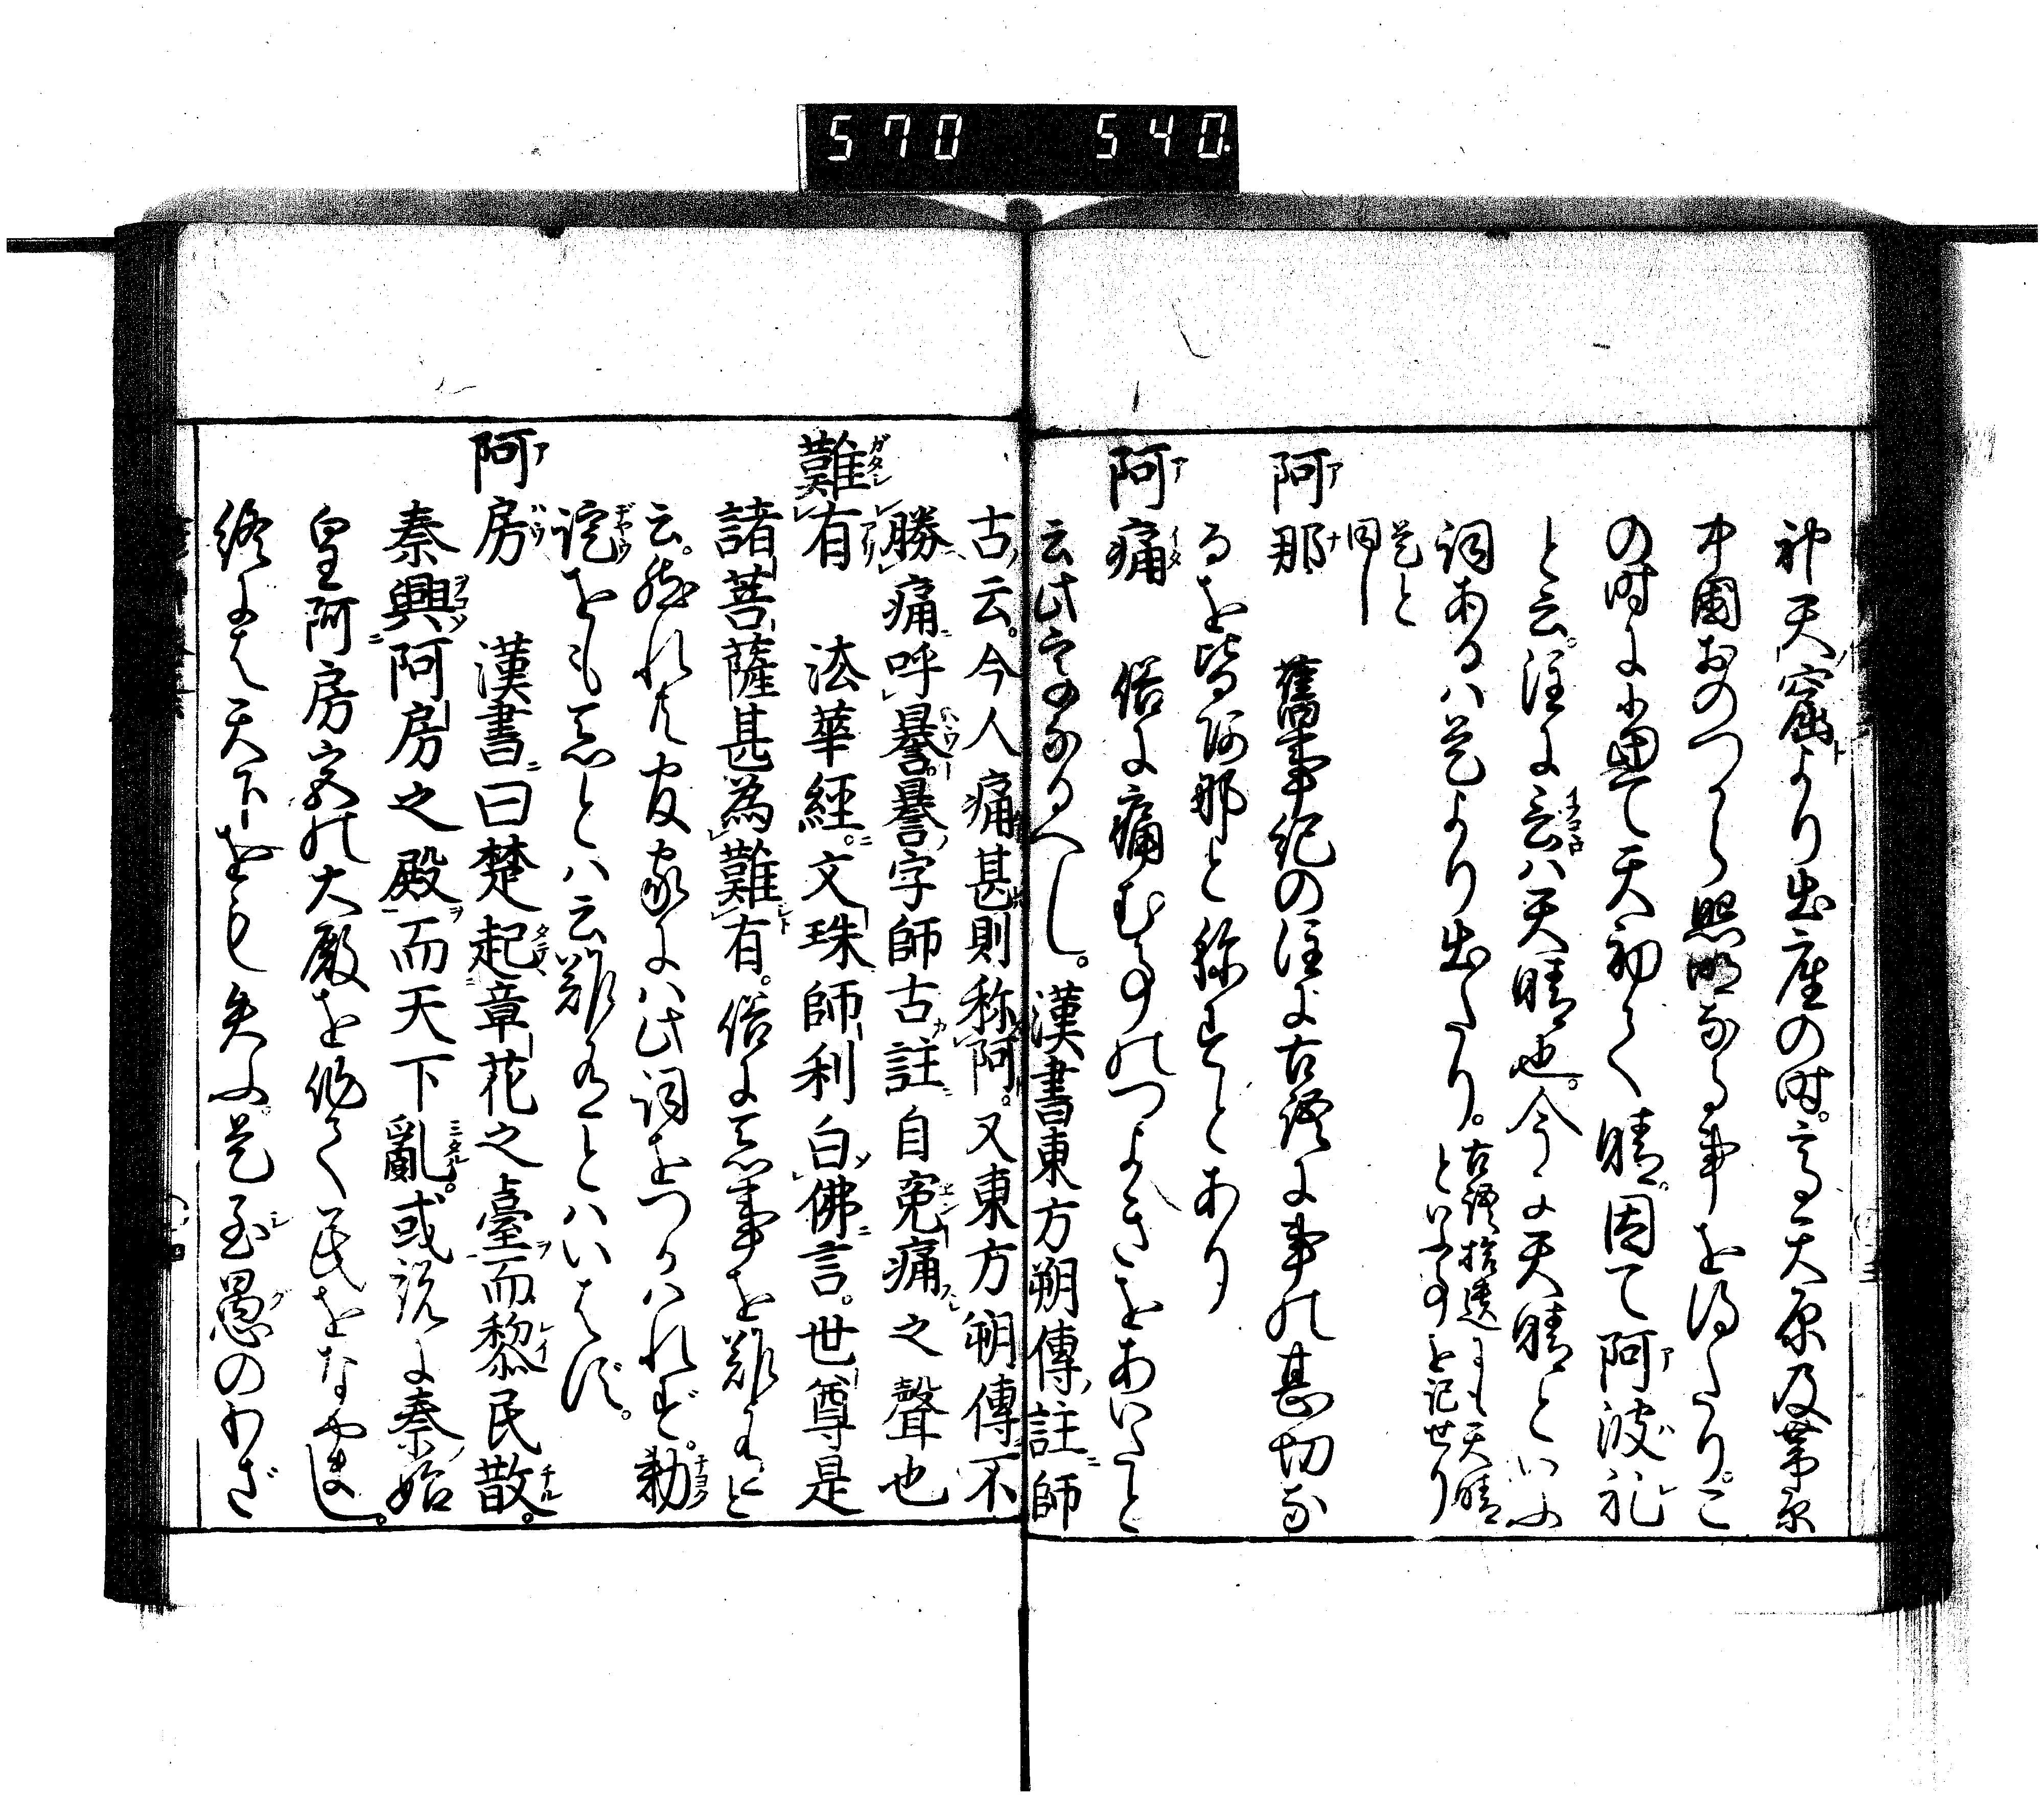 570 540
神天窟より出座の時。高天原及葦原
中國おのつから照明なる事を得たり。こ
の時に當て天初て晴。因て阿波礼
と云。注に言ハ天晴也。今に天晴といふ
詞あるハ是より出たり。古語拾遺にも天晴といふ事を記せり
是と同し
阿那 舊事紀の注に古語に事の甚切な
るを皆阿那と稱すとあり
阿痛 俗に痛む事のつよきをあいたと
云此意なるへし。漢書東方朔傳註師
古云。今人痛甚則称阿。又東方朔傳不
勝痛呼謈。謈字師古註自寃痛之聲也
難有 法華經。文珠師利白佛言。世尊是
諸菩薩甚為難有。俗に悪事を難有と
云。然れは官家にハ此詞をつかハれず。勅
諚をも悪とハ云難有とハいはず。
阿房 漢書曰楚起章花之臺而黎民散。
秦興阿房之殿而天下亂。或説に秦始
皇阿房宮の大殿を作て民をなやまし。
終には天下をも失ふ。是至愚のわざ